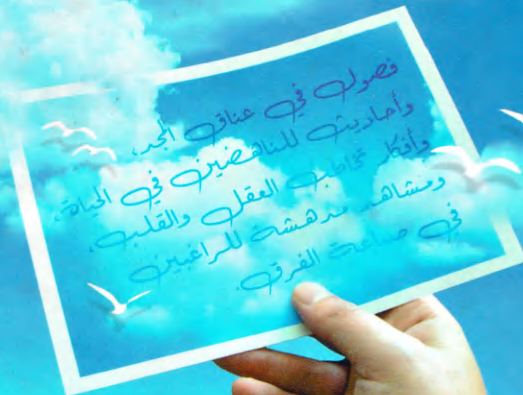 فصول في عناق المجد،
وأحاديث للناهضين في الحياة،
وأفكار تخاطب العقل والقلب،
ومشاهد مدهشة للراغبين
في صناعة الفرق.